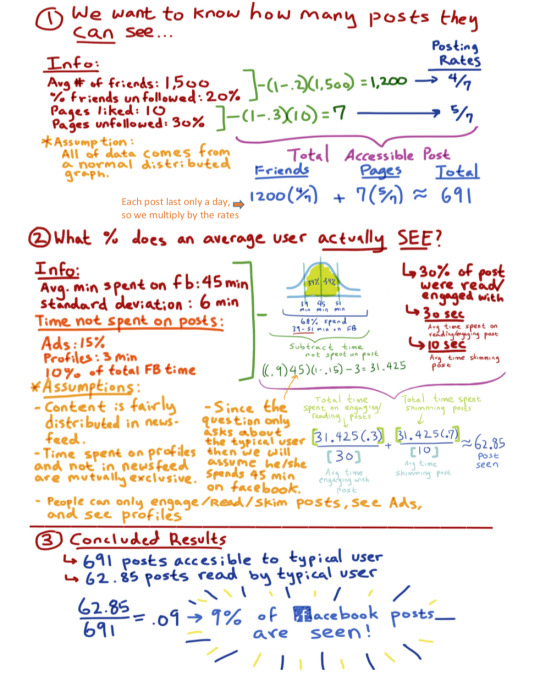 ① We want to know how many posts they
can see...
Posting
Rates
Info:
Avg # of friends: 1,500
% friends unfollowed: 20%
]-(1-.2)(1,500) = 1,200 → 4/7
Pages liked: 10
Pages unfollowed: 30%
]-(1-.3)(10) = 7 → 5/7
*Assumption:
All of data comes from
a normal distributed
graph.
Total Accessible Post
Friends Pages Total
1200(4/7) + 7(5/7) ≈ 691
Each post last only a day,
so we multiply by the rates
② What % does an average user actually SEE?
Info:
Avg. min spent on fb: 45 min
standard deviation: 6 min
Time not spent on posts:
Ads: 15%
Profiles: 3 min
10% of total FB time
34% 34%
39 45 51
min min min
68% spend
39-51 min on FB
Subtract time
not spent on post
((.9)45)(1-.15)-3=31.425
↳ 30% of post
were read/
engaged with
↳ 30 sec
Avg time spent on
reading/engaging post
↳ 10 sec
Avg time skimming
post
*Assumptions:
- Content is fairly
distributed in news-
feed.
- Time spent on profiles
and not in newsfeed
are mutually exclusive.
- Since the
question only
asks about
the typical user
then we will
assume he/she
spends 45 min
on facebook.
- People can only engage/Read/skim posts, see Ads,
and see profiles
Total time
spent on engaging/
reading posts
Total time spent
skimming posts
[31.425(.3)] + [31.425(.7)] ≈ 62.85
[30] [10]
Post
seen
Avg time
engaging with
post
Avg time
skimming post
③ Concluded Results
↳ 691 posts accesible to typical user
↳ 62.85 posts read by typical user
62.85/691 = .09 → 9% of facebook posts
are seen!